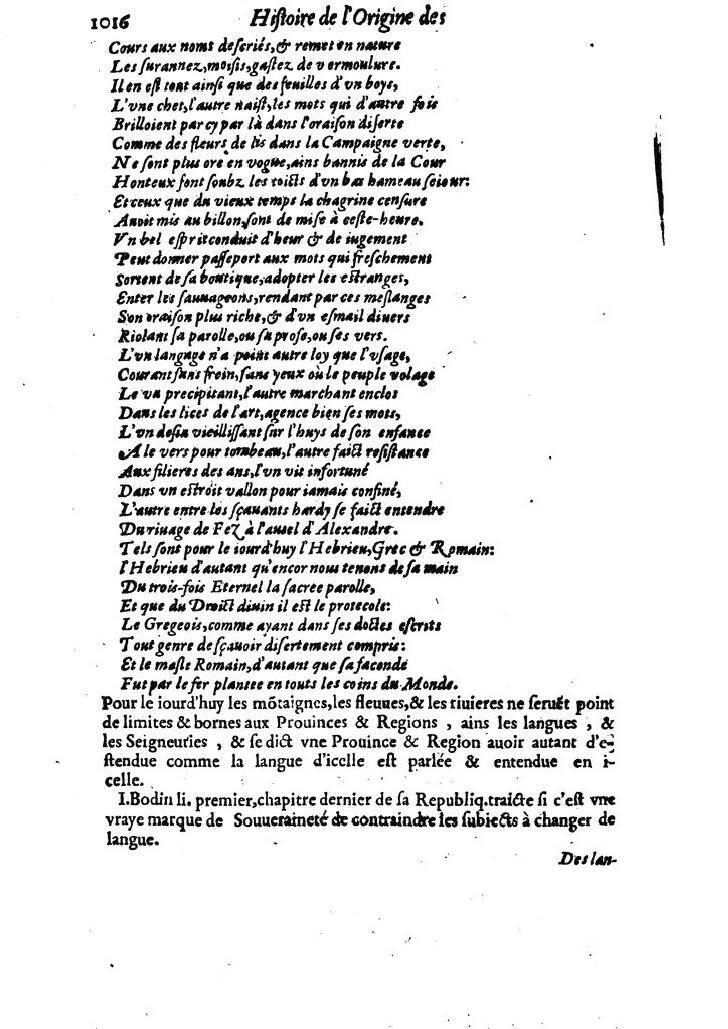 1016 Histoire de l'Origine des
Cours aux noms descriés,& remet en nature
Les surannez,moisis,gastez de vermoulure.
Il en est tout ainsi que des feuilles d'vn boys,
L'vne chet,l'autre naist,les mots qui d'autre fois
Brilloient par cy par là dans l'oraison diserte
Comme des fleurs de lis dans la Campaigne verte,
Ne sont plus ore en vogue,ains bannis de la Cour
Honteux font soubz les toicts d'vn bas hameau seiour:
Et ceux que du vieux temps la chagrine censure
Auoit mis au billon,sont de mise à ceste-heure.
Vn bel esprit conduit d'heur & de iugement
Peut donner passeport aux mots qui freschement
Sortent de sa boutique,adopter les estranges,
Enter les sauuageons,rendant par ces meslanges
Son oraison plus riche,& d'vn esmail diuers
Riolant sa parolle,ou sa prose,ou ses vers.
L'vn langage n'a point autre loy que l'vsage,
Courant sans frein,sans yeux où le peuple volage
Le va precipitant,l'autre marchant enclos
Dans les lices de l'art,agence bien ses mots,
L'vn desia vieillissant sur l'huys de son enfance
A le vers pour tombeau,l'autre faict resistance
Aux filieres des ans,l'vn vit infortuné
Dans vn estroit vallon pour iamais confiné,
L'autre entre les sçauants hardy se faict entendre
Du riuage de Fez à l'autel d'Alexandre.
Tels sont pour le iourd'huy l'Hebrieu,Grec & Romain:
l'Hebrieu d'autant qu'encor nous tenons de sa main
Du trois-fois Eternel la sacree parolle,
Et que du Droict diuin il est le protecole:
Le Gregeois,comme ayant dans ses doctes escrits
Tout genre de sçauoir disertement compris:
Et le masle Romain,d'autant que sa faconde
Fut par le fer plantee en touts les coins du Monde.
Pour le iourd'huy les mõtaignes,les fleuues,& les riuieres ne seruẽt point
de limites & bornes aux Prouinces & Regions , ains les langues , &
les Seigneuries , & se dict vne Prouince & Region auoir autant d'e-
stendue comme la langue d'icelle est parlée & entendue en i-
celle.
I.Bodin li. premier,chapitre dernier de sa Republiq.traicte si c'est vne
vraye marque de Souueraineté de contraindre les subiects à changer de
langue.
Des lan-